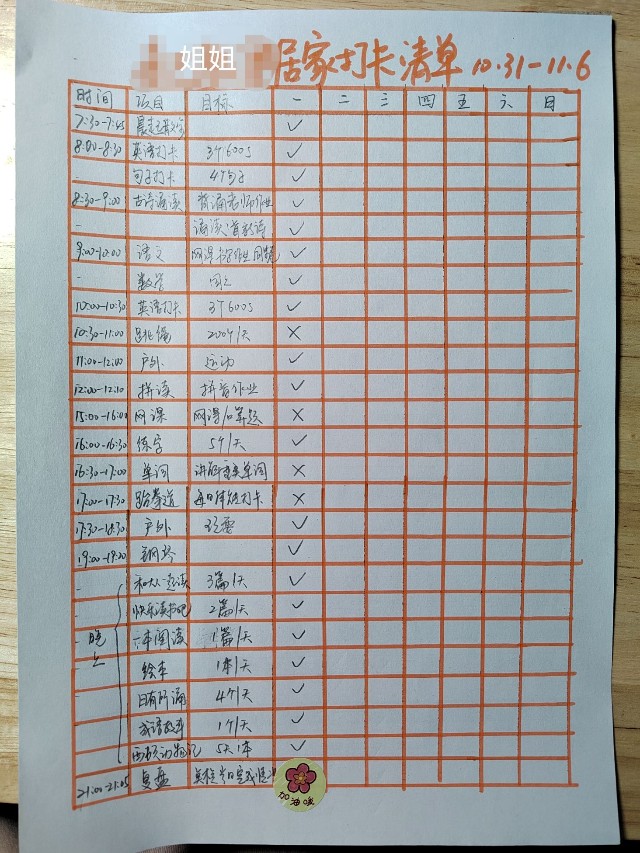 姐姐 居家打卡清单 10.31-11.6
时间 项目 目标 一 二 三 四 五 六 日
7:30-7:45 晨起 ✓
8:00-8:30 英语打卡 3个600s ✓
- 句子打卡 4个句子 ✓
8:30-9:00 古诗诵读 背诵老师作业 ✓
- 诵读 ✓
9:00-10:00 语文 网课 作业 ✓
- 数学 同上 ✓
10:00-10:30 英语打卡 3个600s ✓
10:30-11:00 跳绳 200个/天 ×
11:00-12:00 户外 运动 ✓
12:00-12:10 拼读 拼音作业 ✓
15:00-16:00 网课 网课/口算题 ×
16:00-16:30 练字 5个/天 ✓
16:30-17:00 单词 单词 ×
17:00-17:30 跆拳道 每日 打卡 ×
17:30-18:30 户外 玩耍 ✓
19:00-19:00 钢琴 ✓
- 和大人一起读 3篇/天 ✓
- 快乐读书吧 2篇/天 ✓
- 晚上 六本阅读 1篇/天 ✓
- 绘本 1本/天 ✓
- 日有所诵 4个/天 ✓
- 成语故事 1个/天 ✓
- 西顿动物记 5天1本 ✓
21:00-21:05 复盘 当日完成情况
加油哦